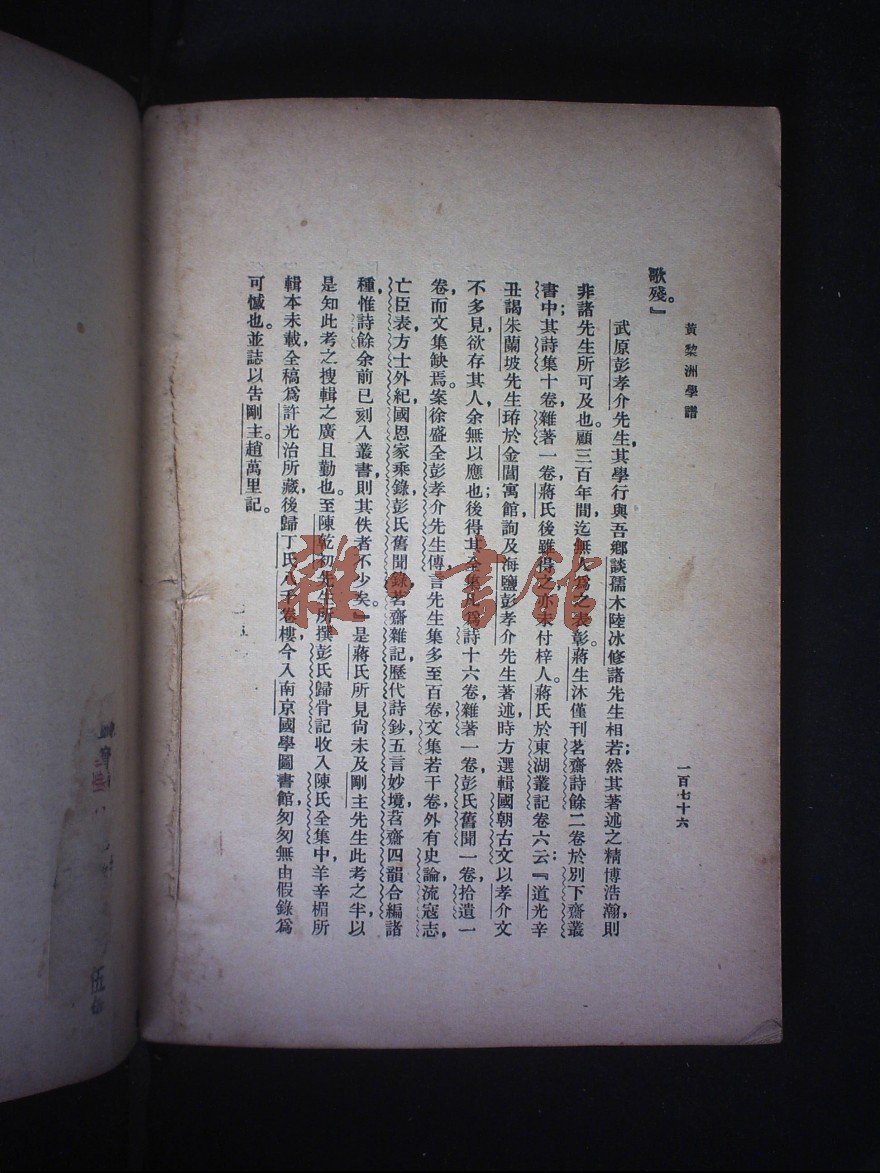 黃黎洲學譜
一百七十六
歌殘。』
武原彭孝介先生，其學行與吾鄉談孺木陸冰修諸先生相若；然其著述之精博浩瀚，則
非諸先生所可及也。顧三百年間迄無人為之表彰。蔣生沐僅刊茗齋詩餘二卷於別下齋叢
書中；其詩集十卷，雜著一卷，蔣氏後雖得之，亦未付梓人。蔣氏於東湖叢記卷六云：『道光辛
丑，謁朱蘭坡先生珔於金閶寓館，詢及海鹽彭孝介先生著述，時方選輯國朝古文，以孝介文
不多見，欲存其人，余無以應也；後得其全集，此為詩十六卷，雜著一卷，彭氏舊聞一卷，拾遺一
卷，而文集缺焉。案徐盛全彭孝介先生傳言先生集多至百卷，文集若干卷，外有史論，流寇志，
亡臣表，方士外紀，國恩家乘錄，彭氏舊聞錄，茗齋雜記，歷代詩鈔，五言妙境，茗齋四韻合編諸
種，惟詩餘余前已刻入叢書，則其佚者不少矣。』是蔣氏所見尚未及剛主先生此考之半，以
是知此考之搜輯之廣且勤也。至陳乾初先生所撰彭氏歸骨記收入陳氏全集中，羊辛楣所
輯本未載，全稿為許光治所藏，後歸丁氏八千卷樓，今入南京國學圖書館，匆匆無由假錄為
可憾也。並誌以告剛主。趙萬里記。
雜·書館
伍